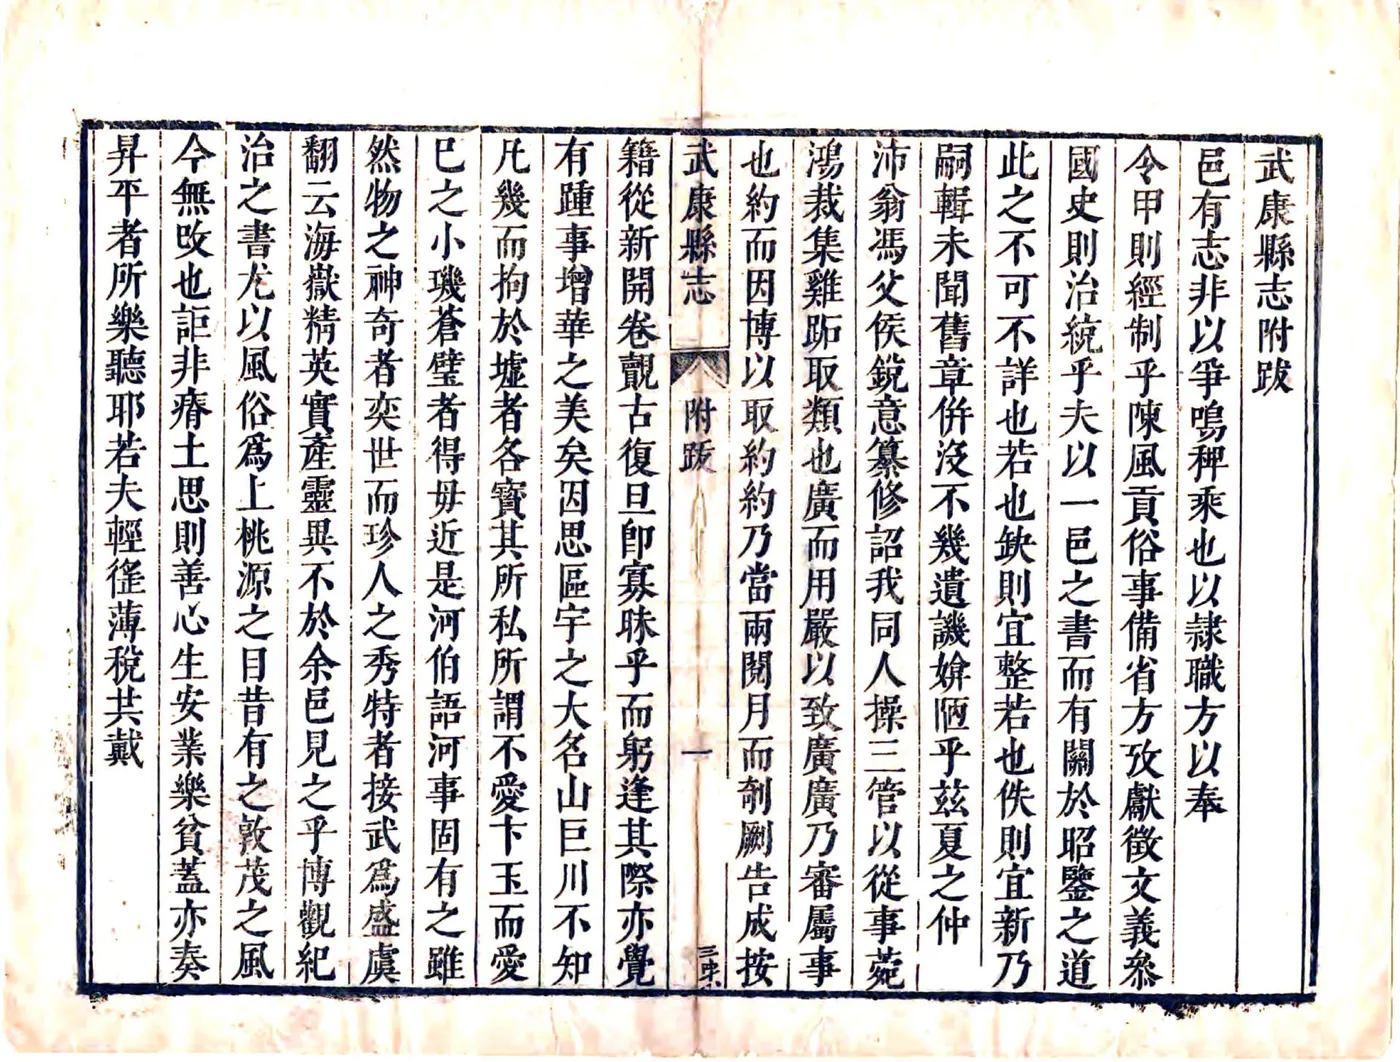 武康縣志附跋
邑有志非以爭鳴稗乘也以隷職方以奉
令甲則經制乎陳風貢俗事備省方攷獻徵文義叅
國史則治統乎夫以一邑之書而有關於昭鑒之道
此之不可不詳也若也缺則宜整若也佚則宜新乃
嗣輯未聞舊章倂沒不幾遺譏媕陋乎茲夏之仲
沛翁馮父侯銳意纂修詔我同人操三管以從事蒐
鴻裁集雞跖取類也廣而用嚴以致廣廣乃審屬事
也約而因博以取約約乃當兩閱月而剞劂告成按
武康縣志
附跋
一
籍從新開卷覿古復旦卽寡昧乎而躬逢其際亦覺
有踵事增華之美矣因思區宇之大名山巨川不知
凡幾而拘於墟者各寶其所私所謂不愛卞玉而愛
巳之小璣蒼璧者得毋近是河伯語河事固有之雖
然物之神奇者奕世而珍人之秀特者接武爲盛虞
翻云海嶽精英實產靈異不於余邑見之乎博觀紀
治之書尤以風俗爲上桃源之日昔有之敦茂之風
今無攺也詎非瘠土思則善心生安業樂貧蓋亦奏
昇平者所樂聽耶若夫輕徭薄稅共戴